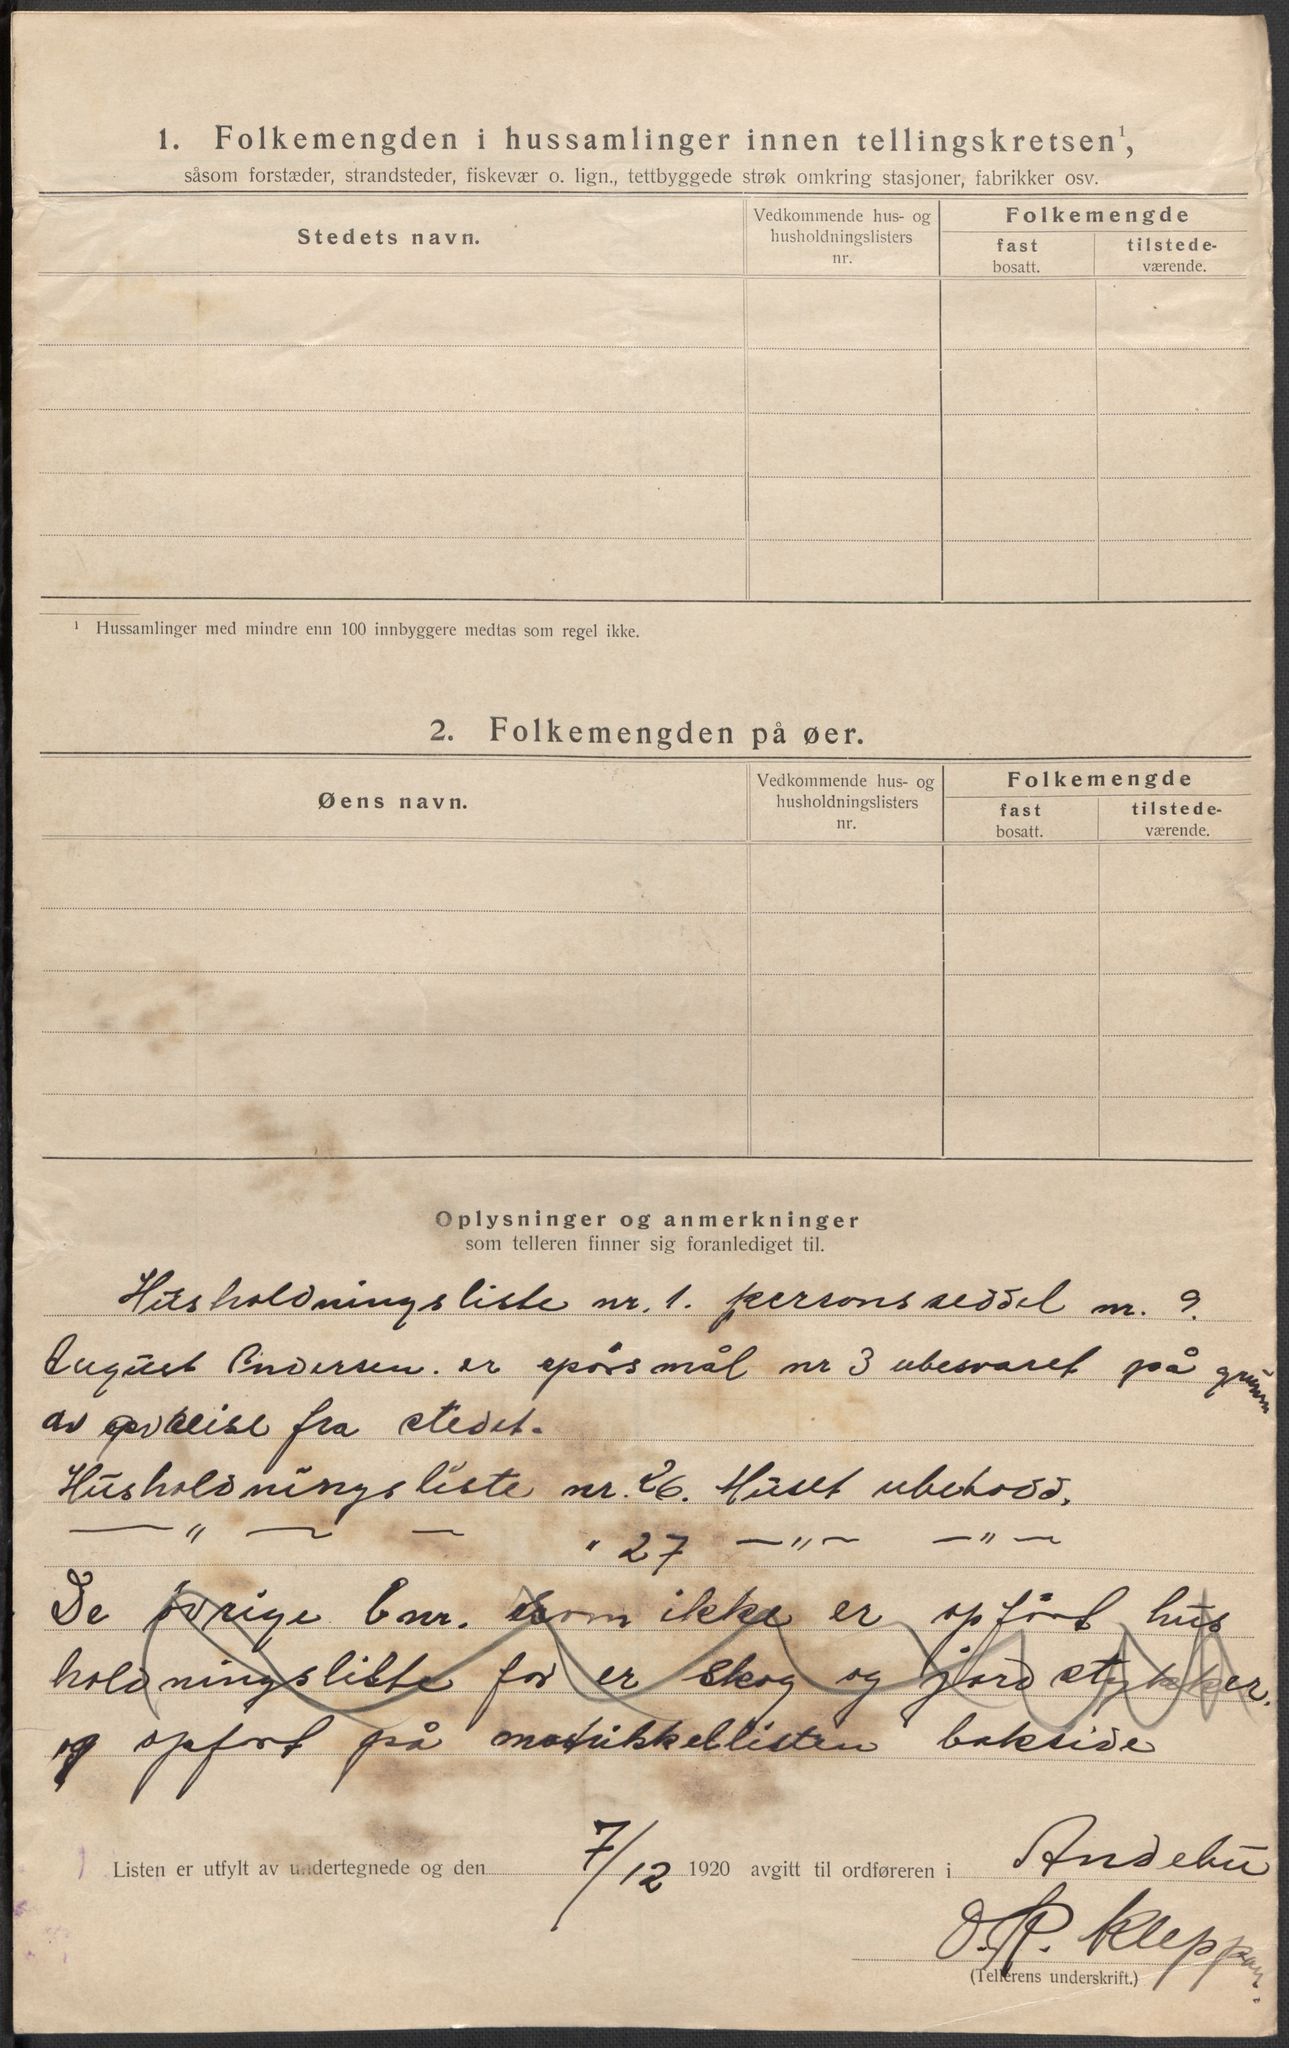 1. Folkemengden i hussamlinger innen tellingskretsen¹,
såsom forstæder, strandsteder, fiskevær o. lign., tettbyggede strøk omkring stasjoner, fabrikker osv.
Stedets navn.
Vedkommende hus- og
husholdningslisters
nr.
Folkemengde
fast
bosatt.
tilstede-
værende.
¹ Hussamlinger med mindre enn 100 innbyggere medtas som regel ikke.
2. Folkemengden på øer.
Øens navn.
Vedkommende hus- og
husholdningslisters
nr.
Folkemengde
fast
bosatt.
tilstede-
værende.
Oplysninger og anmerkninger
som telleren finner sig foranlediget til.
Husholdningsliste nr. 1. personsseddel nr. 9.
August Andersen. er spörsmål nr 3 ubesvaret på grunn
av fra stedet.
Husholdningsliste nr. 26. Huset ubebodd.
— " — — " 27 — " — — " —
De övrige bnr. som ikke er opfört hus
holdningsliste for er skog og jord stykker.
og opfört på matrikkellisten bakside
Listen er utfylt av undertegnede og den 7/12 1920 avgitt til ordføreren i Andebu
O. K. Kleppan.
(Tellerens underskrift.)